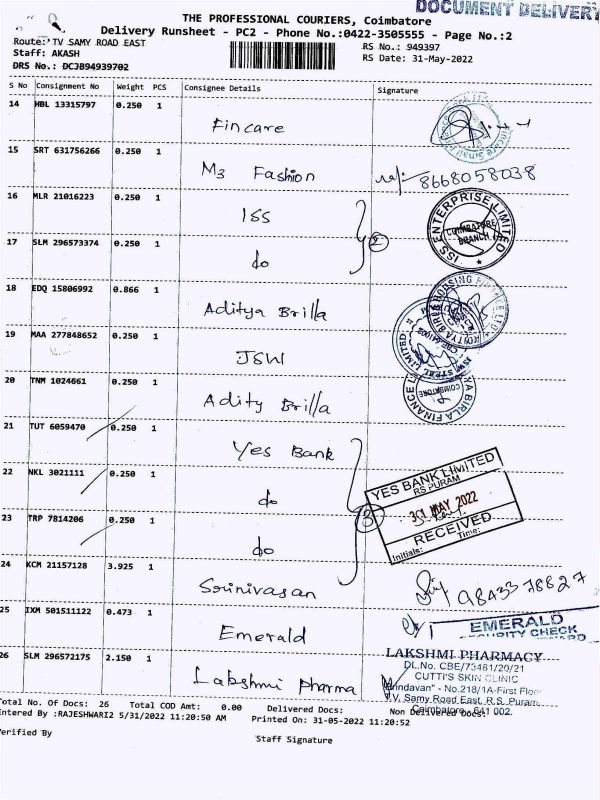 DOCUMENT DELIVERY
THE PROFESSIONAL COURIERS, Coimbatore
Delivery Runsheet - PC2 - Phone No.:0422-3505555 - Page No.:2
Route: TV SAMY ROAD EAST
RS No.: 949397
Staff: AKASH
RS Date: 31-May-2022
DRS No.: DCJB94939702
S No Consignment No Weight PCS Consignee Details Signature
14 HBL 13315797 0.250 1
Fincare
15 SRT 631756266 0.250 1
M3 Fashion
8668058038
16 MLR 21016223 0.250 1
ISS
ISS ENTERPRISE LIMITED
COIMBATORE
BRANCH
17 SLM 296573374 0.250 1
2
do
18 EDQ 15806992 0.866 1
Aditya Brilla
19 MAA 277848652 0.250 1
JSW
20 TNM 1024661 0.250 1
Adity Brilla
COIMBATORE
21 TUT 6059470 0.250 1
Yes Bank
22 NKL 3021111 0.250 1
do
YES BANK LIMITED
RS PURAM
31 MAY 2022
RECEIVED
Initials: Time:
23 TRP 7814206 0.250 1
3
do
24 KCM 21157128 3.925 1
Srinivasan
9843378627
25 IXM 501511122 0.473 1
Emerald
EMERALD
SECURITY CHECK
26 SLM 296572175 2.150 1
Lakshmi Pharma
LAKSHMI PHARMACY
DL.No. CBE/73481/20/21
CUTTI'S SKIN CLINIC
Brindavan" - No.218/1A-First Floor
T.V. Samy Road East, R.S. Puram,
Coimbatore - 641 002.
Total No. Of Docs: 26 Total COD Amt: 0.00 Delivered Docs: Non Delivered Docs:
Entered By :RAJESHWARI2 5/31/2022 11:20:50 AM Printed On: 31-05-2022 11:20:52
Verified By
Staff Signature